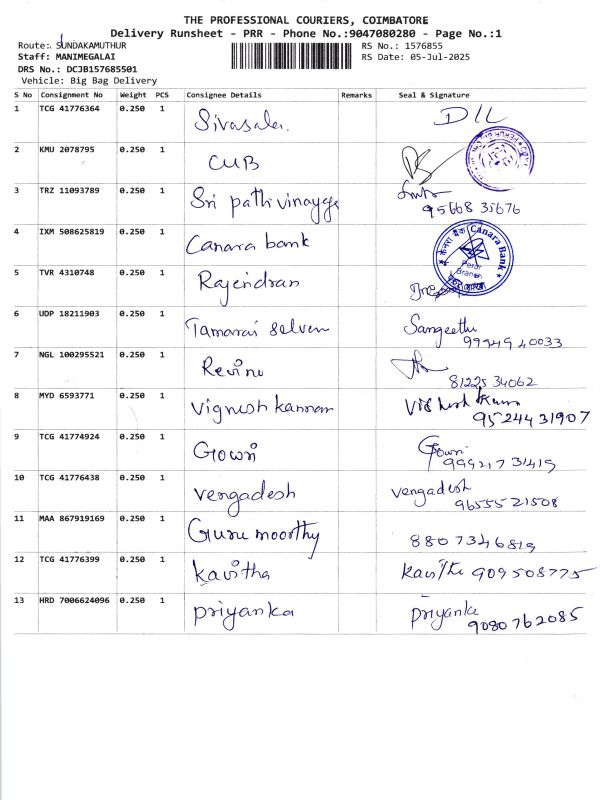 THE PROFESSIONAL COURIERS, COIMBATORE
Delivery Runsheet - PRR - Phone No.:9047080280 - Page No.:1
Route: SUNDAKAMUTHUR RS No.: 1576855
Staff: MANIMEGALAI RS Date: 05-Jul-2025
DRS No.: DCJB157685501
Vehicle: Big Bag Delivery
S No Consignment No Weight PCS Consignee Details Remarks Seal & Signature
1 TCG 41776364 0.250 1 Sivasala. DIL
2 KMU 2078795 0.250 1 CUB
3 TRZ 11093789 0.250 1 Sri pathvinayga 95668 35676
4 IXM 508625819 0.250 1 Canara bank केनरा बैंक Canara Bank Perur Branch
5 TVR 4310748 0.250 1 Rajendran
6 UDP 18211903 0.250 1 Tamarai selven Sangeetha 99949 40033
7 NGL 100295521 0.250 1 Revinu 81225 34062
8 MYD 6593771 0.250 1 Vignesh kannan 95244 31907
9 TCG 41774924 0.250 1 Gowri Gowri 99947 31419
10 TCG 41776438 0.250 1 vengadesh vengadesh 96555 21508
11 MAA 867919169 0.250 1 Guru moorthy 8807346819
12 TCG 41776399 0.250 1 kavitha kavitha 909508775
13 HRD 7006624096 0.250 1 priyanka priyanka 9080762085